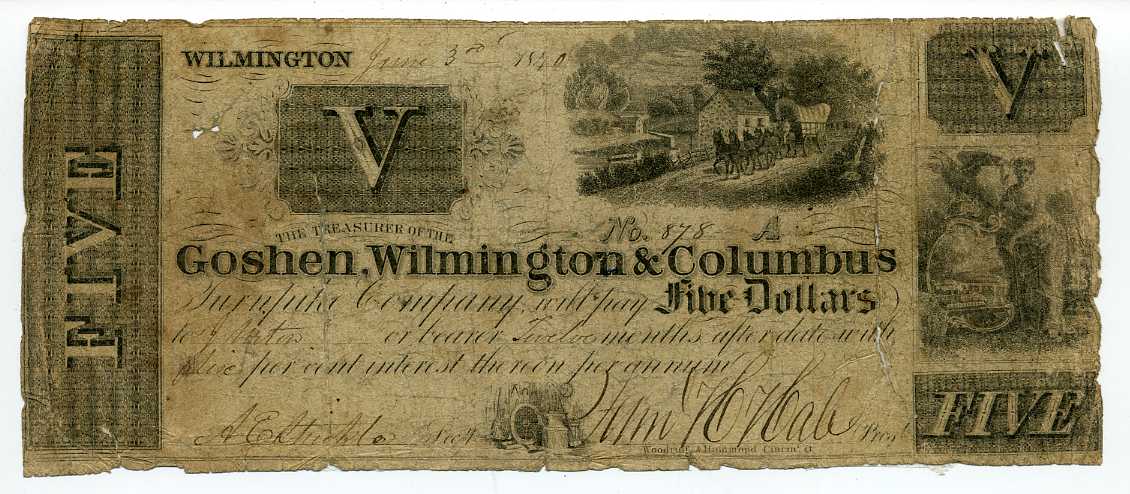 FIVE
WILMINGTON June 3rd 1840
V
V
THE TREASURER OF THE
No. 878 A
Goshen, Wilmington & Columbus
Turnpike Company, will pay Five Dollars
to or bearer Twelve months after date with
Six per cent interest thereon per annum
Secy
Prest
Woodruff & Hammond Cincin. O.
FIVE